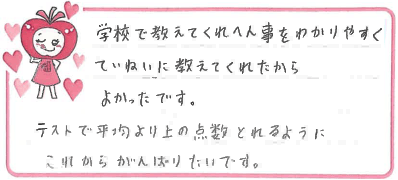 学校で教えてくれへん事をわかりやすく
ていねいに教えてくれたから
よかったです。
テストで平均より上の点数とれるように
これからがんばりたいです。